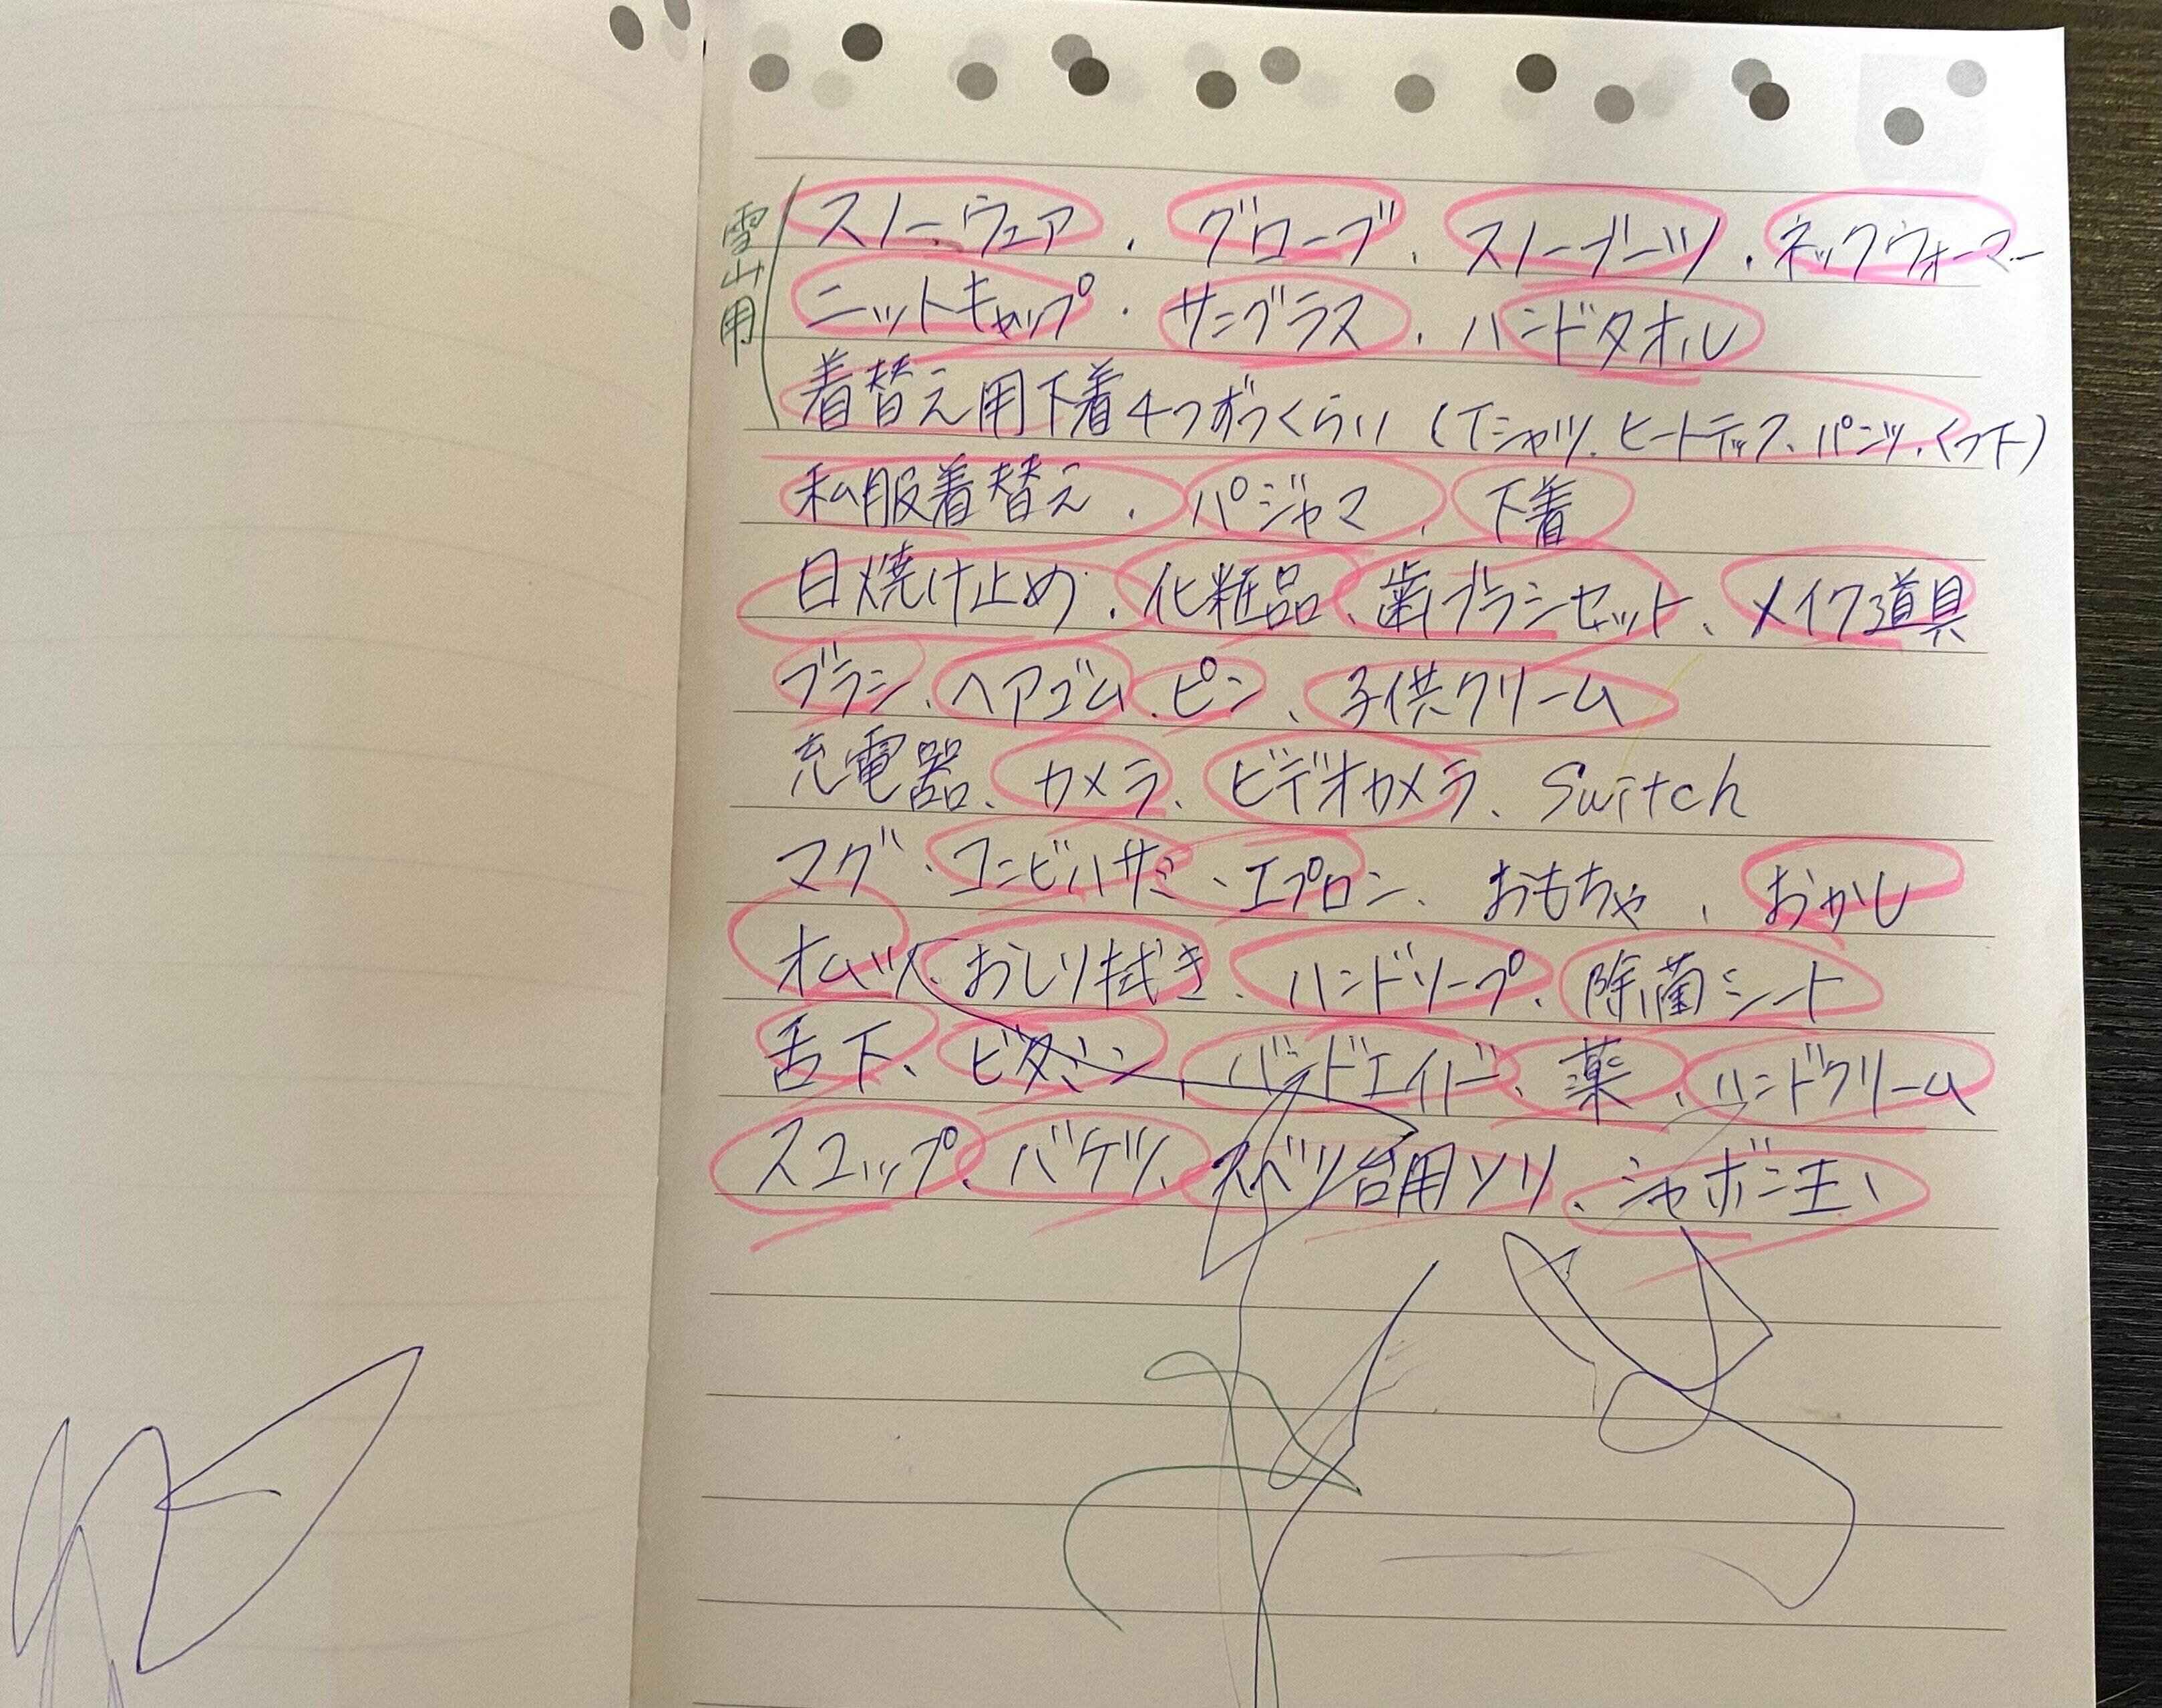 雪山用
スノーウェア、グローブ、スノーブーツ、ネックウォーマー
ニットキャップ、サングラス、ハンドタオル
着替え用下着4つずつくらい（Tシャツ、ヒートテック、パンツ、くつ下）
私服着替え、パジャマ、下着
日焼け止め、化粧品、歯ブラシセット、メイク道具
ブラシ、ヘアゴム、ピン、子供クリーム
充電器、カメラ、ビデオカメラ、Switch
マグ、コンビハサミ、エプロン、おもちゃ、おかし
オムツ、おしり拭き、ハンドソープ、除菌シート
舌下、ビタミン、バンドエイド、薬、ハンドクリーム
スコップ、バケツ、スベリ台用ソリ、シャボン玉、